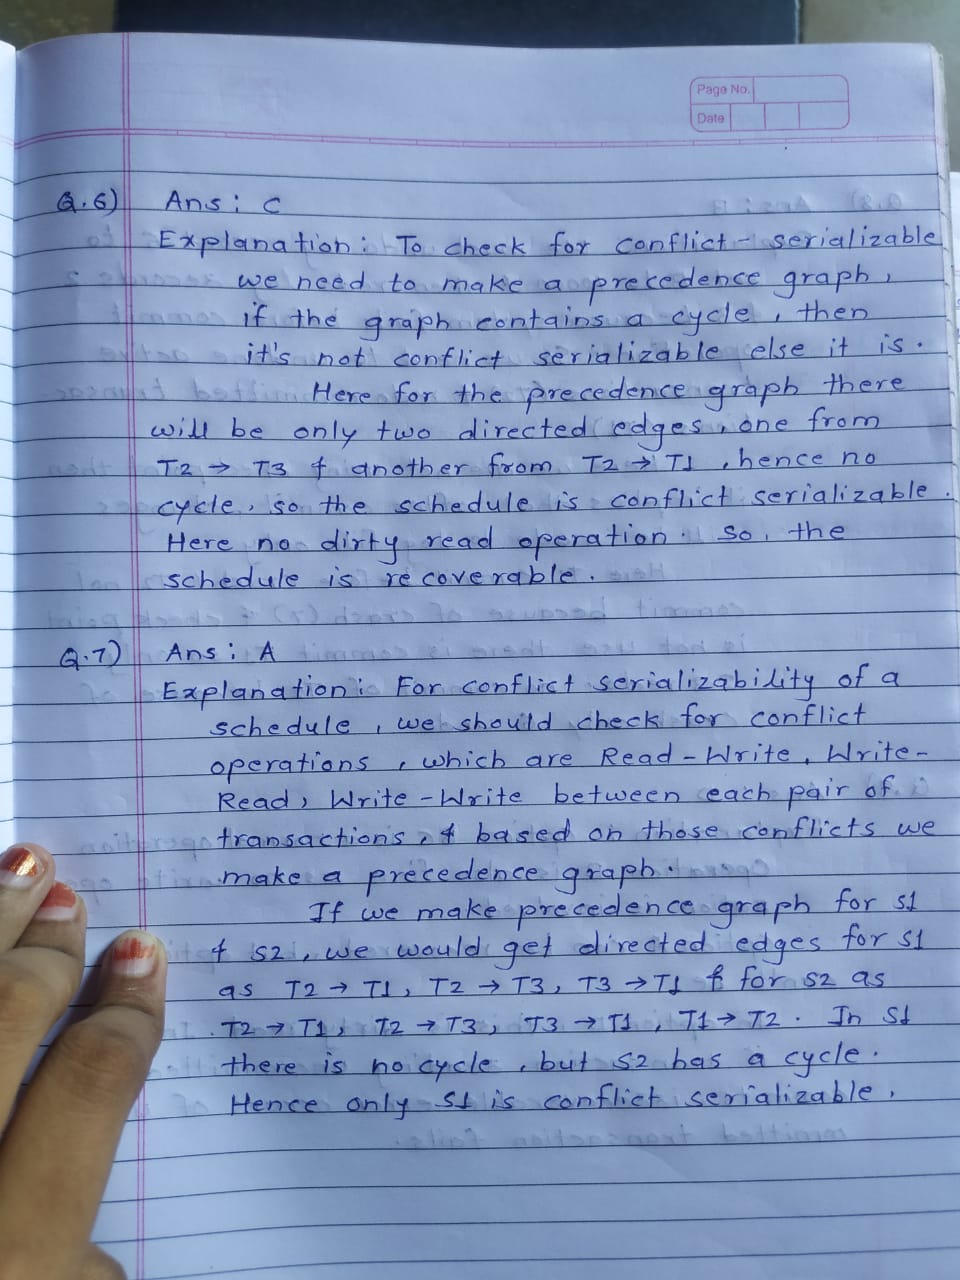 Page No.
Date
Q.6) Ans: C
Explanation: To check for conflict - serializable
we need to make a precedence graph,
if the graph contains a cycle, then
it's not conflict serializable else it is.
Here for the precedence graph there
will be only two directed edges, one from
T2 → T3 & another from T2 → T1, hence no
cycle, so the schedule is conflict serializable.
Here no dirty read operation. So, the
schedule is recoverable.
Q.7) Ans: A
Explanation: For conflict serializability of a
schedule, we should check for conflict
operations, which are Read-Write, Write-
Read, Write-Write between each pair of
transactions, & based on those conflicts we
make a precedence graph.
If we make precedence graph for S1
& S2, we would get directed edges for S1
as T2 → T1, T2 → T3, T3 → T1 & for S2 as
T2 → T1, T2 → T3, T3 → T1, T1 → T2. In S1
there is no cycle, but S2 has a cycle.
Hence only S1 is conflict serializable.